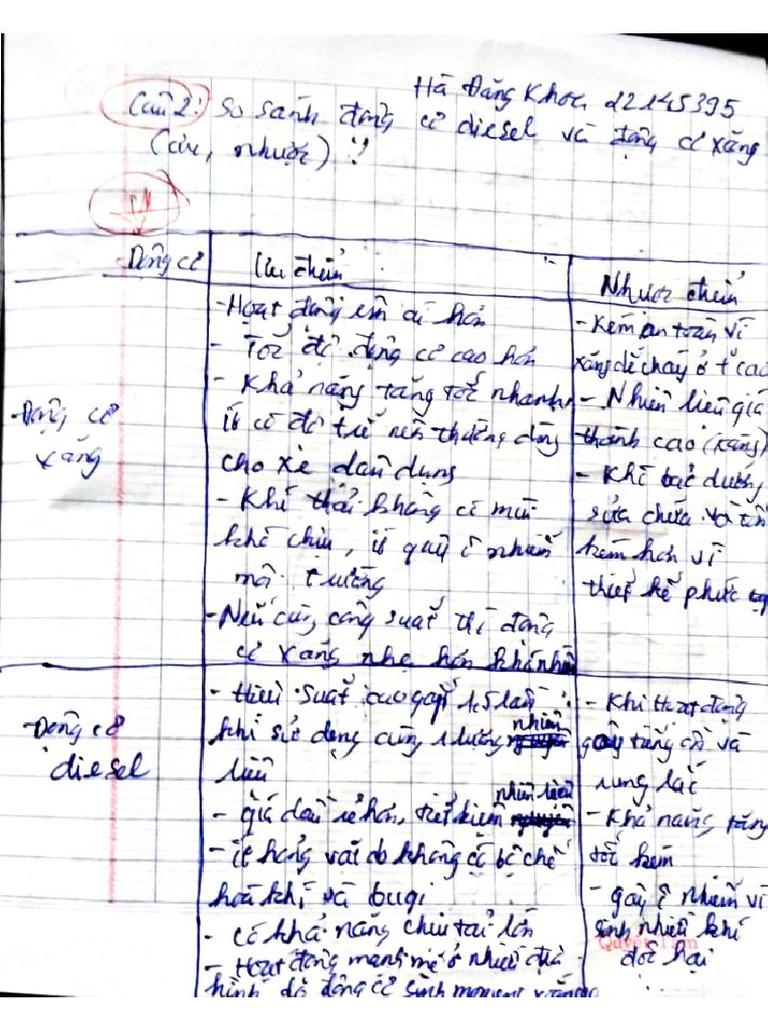 Hà Đăng Khoa 22145395
Câu 2: So sánh động cơ diesel và động cơ xăng
(ưu, nhược)?
Động cơ
Ưu điểm
Nhược điểm
- Động cơ
xăng
- Hoạt động êm ái hơn
- Tốc độ động cơ cao hơn
- Khả năng tăng tốc nhanh,
ít có độ trễ nên thường dùng
cho xe dân dụng
- Khí thải không có mùi
khó chịu, ít gây ô nhiễm
môi trường
- Nếu cùng công suất thì động
cơ xăng nhẹ hơn
- Kém an toàn vì
xăng dễ cháy ở t° cao
- Nhiên liệu giá
thành cao (xăng)
- Khi bảo dưỡng
sửa chữa và tốn
kém hơn vì
thiết kế phức tạp
- Động cơ
diesel
- Hiệu suất cao gấp 1,5 lần
khi sử dụng cùng 1 lượng nhiên
liệu
- giá dầu rẻ hơn, tiết kiệm nhiên liệu
- ít hỏng vặt do không có bộ chế
hoà khí và bugi
- có khả năng chịu tải lớn
- Hoạt động mạnh mẽ ở nhiều địa
hình do động cơ sinh moment xoắn
- Khi hoạt động
gây tiếng ồn và
rung lắc
- Khả năng tăng
tốc kém
- gây ô nhiễm vì
sinh nhiều khí
độc hại